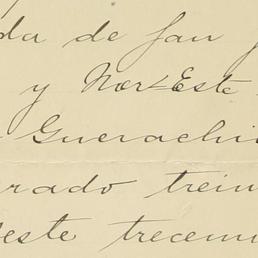 da de San
y Nor-Este
Guerachi
rado trein
este trecein